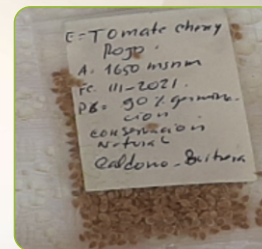 E=Tomate cherry
Rojo.
A. 1650 msnm
Fc. III-2021.
PG= 90% germina-
ción
conservación
Natural
Caldono-